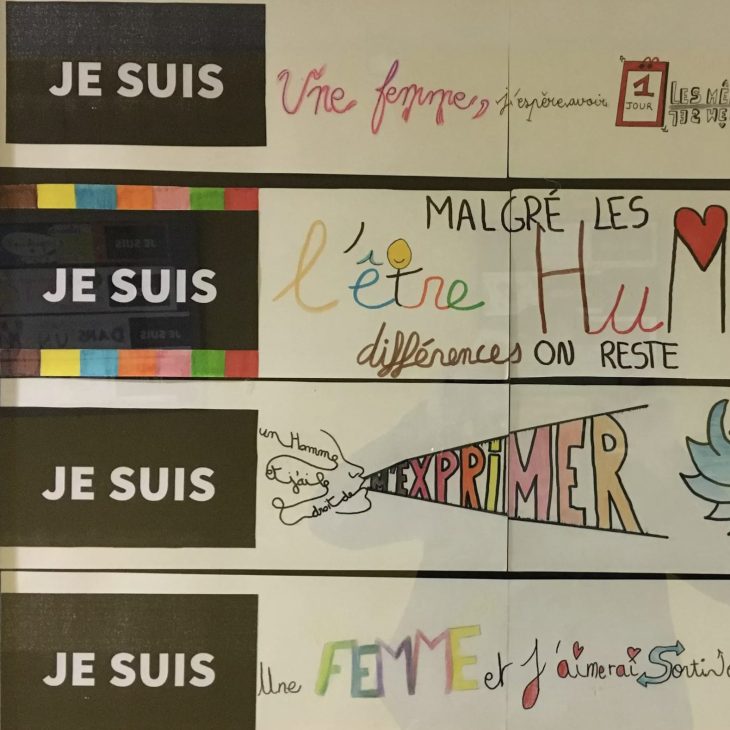 JE SUIS Une femme, j'espère avoir 1 JOUR LES MÊ
JE SUIS
MALGRÉ LES
l'être HuM
différences ON RESTE
JE SUIS
un Homme
et j'ai le
droit de
M'EXPRiMER
JE SUIS Une FEMME et J'aimerai Sortir